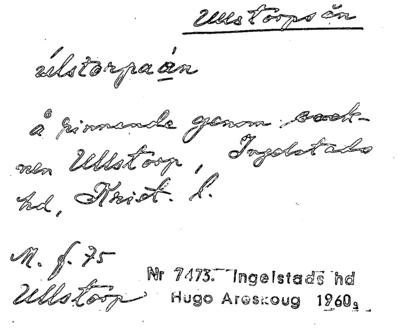 Ullstorpsån
úlstorpaán
å rinnande genom sock-
nen Ullstorp, Ingelstads
hd, Krist. l.
M. f. 75
Ullstorp
Nr 7473. Ingelstads hd
Hugo Areskoug 1960